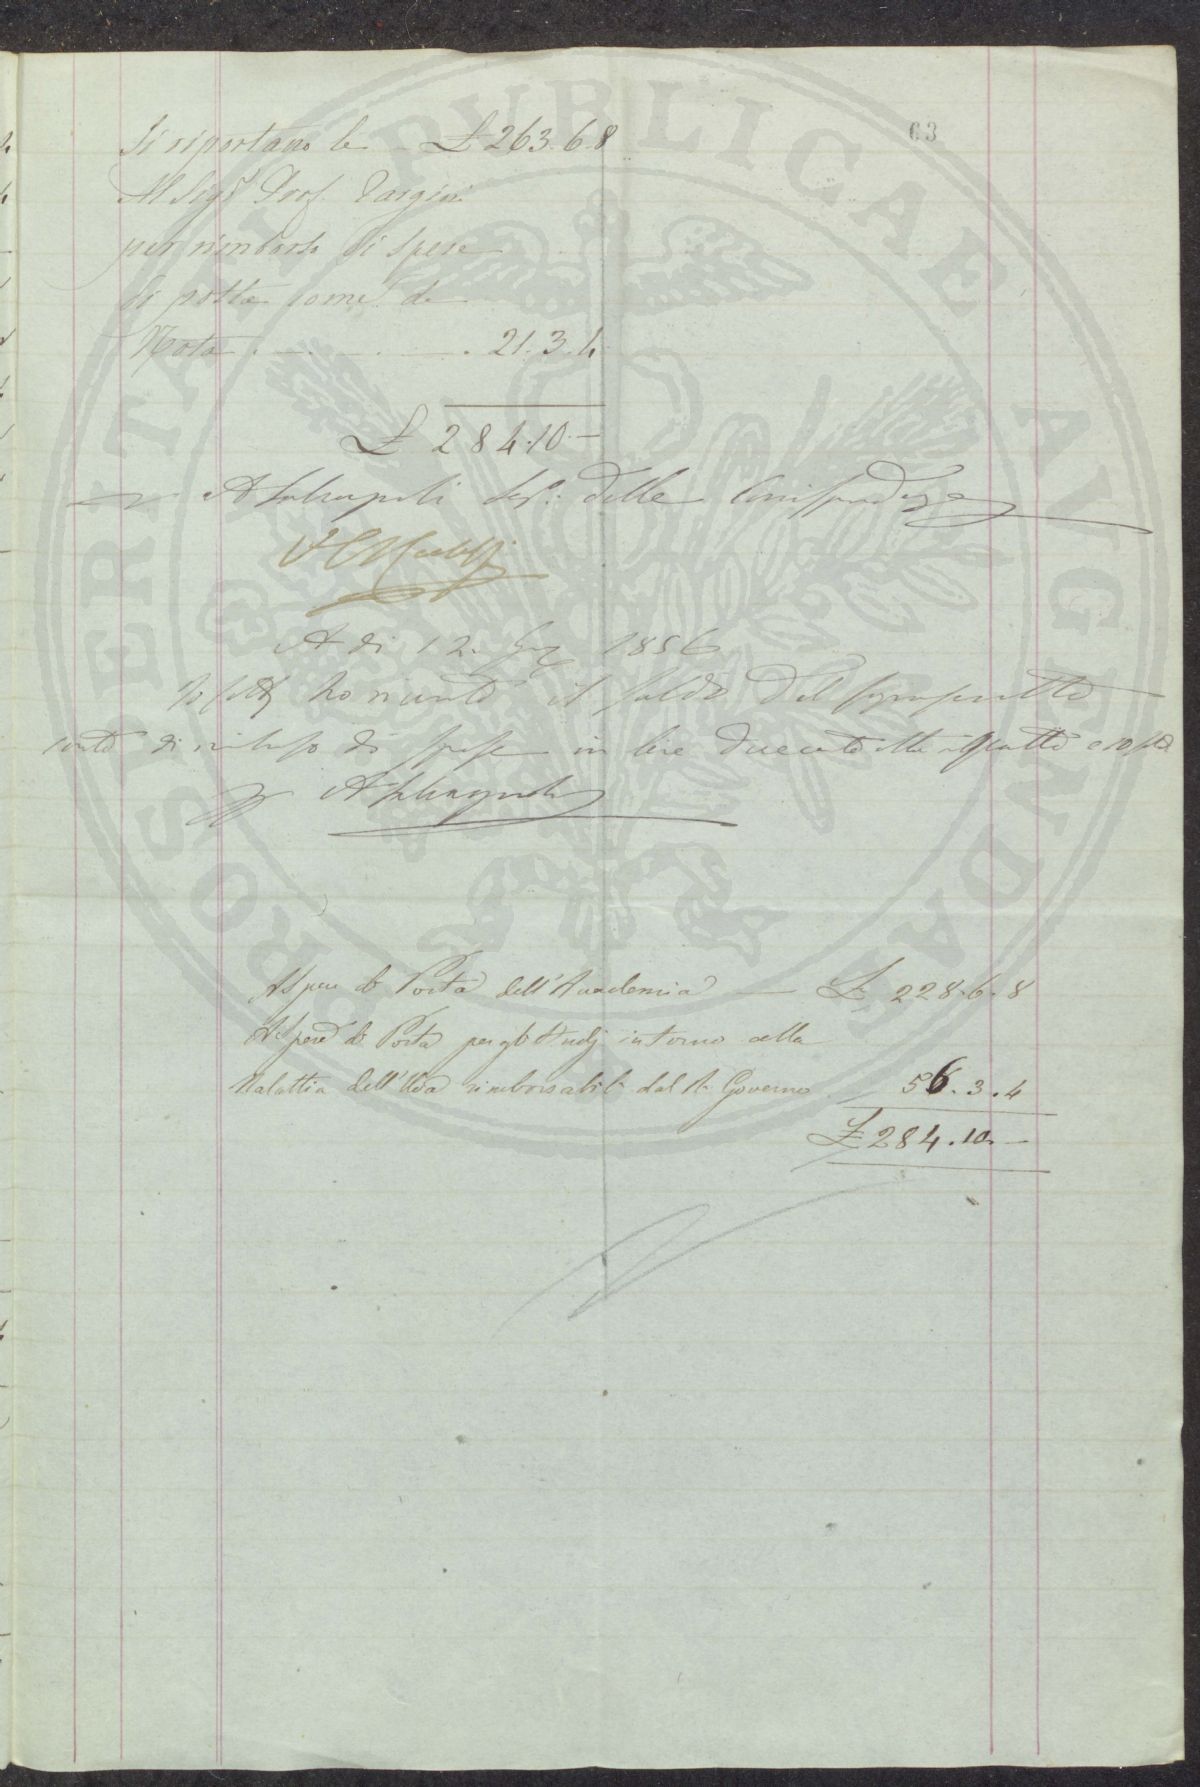 63
Si riportano le £ 263.6.8
Al Sigr Prof. Targioni
per rimborso di spese
di posta come da
Nota . . . . 21.3.4
£ 284.10.—
A Salvagnoli Segr. delle Corrispondenze
A dì 12. 1856
Io ho ricevuto il saldo del soprascritto
conto di rimborso di spese in lire duecento ottantaquattro e soldi
A Salvagnoli
A spese di Posta dell'Accademia — £ 228.6.8
A spese di Posta per gli Studj intorno alla
Malattia dell'Uva rimborsabili dal R. Governo 56.3.4
£ 284.10.—
PROSPERITATI PUBLICAE AVGENDAE